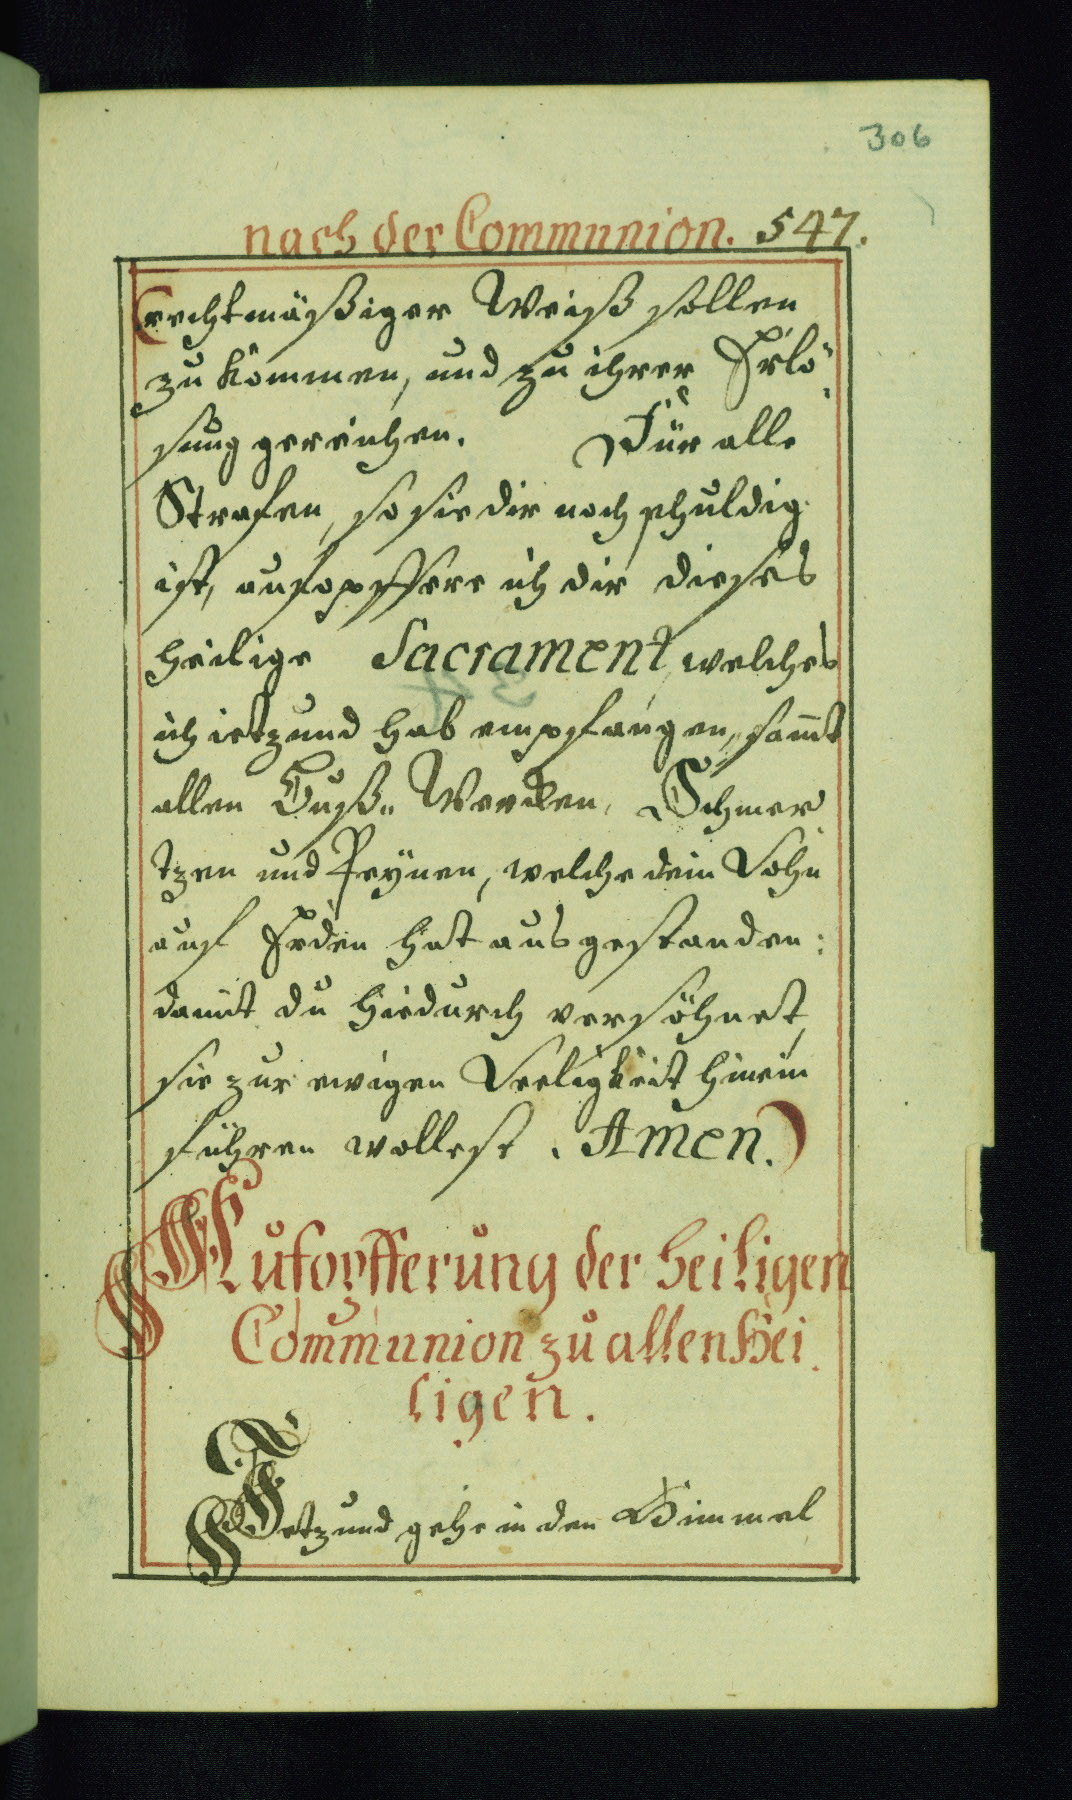 306
nach der Communion. 547.
(rechtmäßiger Weiß sollen
zu kommen, und zu ihrer Erlö-
sung gereichen. Für alle
Strafen, so sie dir noch schuldig
ist, aufopffere ich dir dieses
heilige Sacrament, welches
ich ietzund hab empfangen, sam̄t
allen Buß-Wercken, Schmer
tzen und Peynen, welche dein Sohn
auf Erden hat ausgestanden:
damit du hiedurch versöhnet,
sie zur ewigen Seeligkeit hinein
führen wollest. Amen.)
Aufopfferung der heiligen
Communion zu allen Hei
ligen.
Jetzund gehe in den Himmel